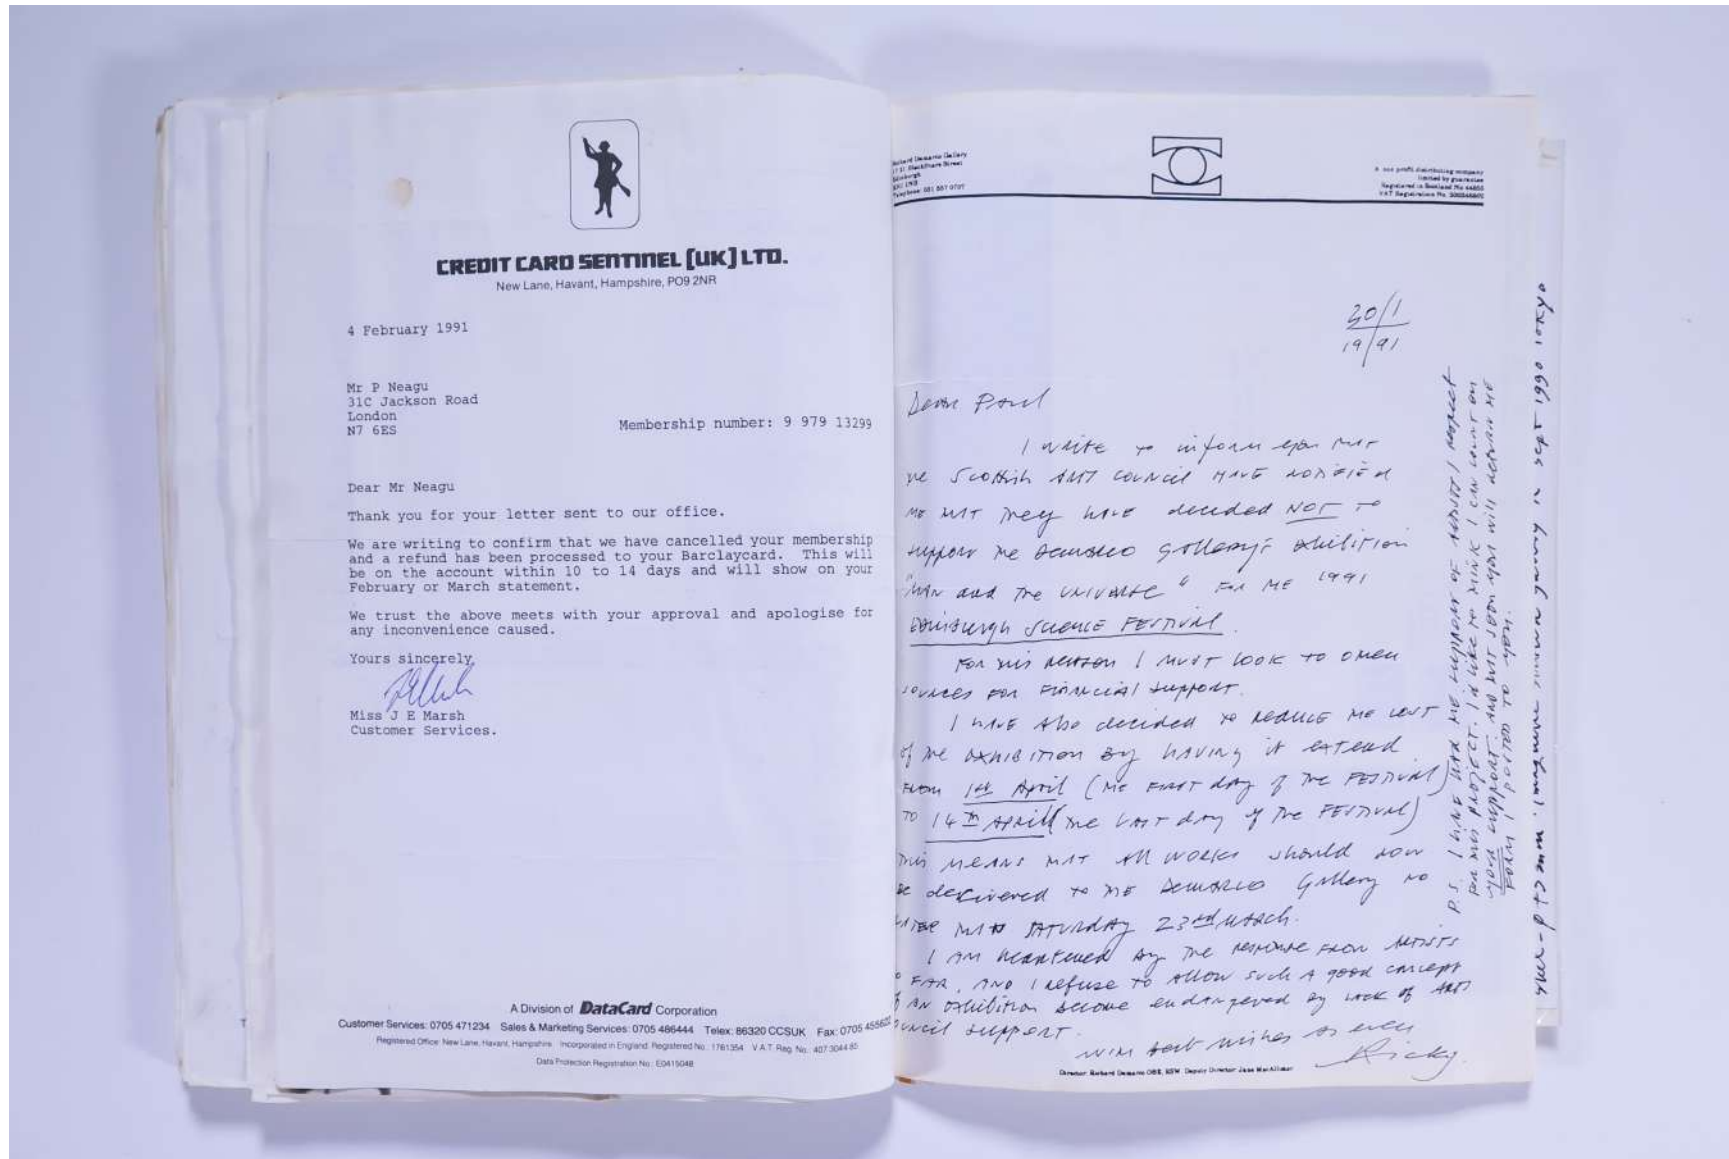 CREDIT CARD SENTINEL [UK] LTD.
New Lane, Havant, Hampshire, PO9 2NR
4 February 1991
Mr P Neagu
31C Jackson Road
London
N7 6ES
Membership number: 9 979 13299
Dear Mr Neagu
Thank you for your letter sent to our office.
We are writing to confirm that we have cancelled your membership
and a refund has been processed to your Barclaycard. This will
be on the account within 10 to 14 days and will show on your
February or March statement.
We trust the above meets with your approval and apologise for
any inconvenience caused.
Yours sincerely
Miss J E Marsh
Customer Services.
A Division of DataCard Corporation
Customer Services: 0705 471234 Sales & Marketing Services: 0705 486444 Telex: 86320 CCSUK Fax: 0705
Registered Office: New Lane, Havant, Hampshire Incorporated in England. Registered No.: 1761354 V.A.T. Reg. No.: 407 3044 85
Data Protection Registration No: E0415048
Richard Demarco Gallery
17 21 Blackfriars Street
Edinburgh
EH1 1NB
Telephone: 031 557 0707
A non profit distributing company
limited by guarantee
Registered in Scotland No
VAT Registration No.
30/1
19/91
Dear Paul
I write to inform you that
the Scottish Arts Council have notified
me that they have decided NOT to
support the Demarco Gallery's exhibition
"Man and the Universe" for the 1991
Edinburgh Science Festival.
For this reason I must look to other
sources for financial support.
I have also decided to reduce the cost
of the exhibition by having it extend
from 1st April (the first day of the Festival)
to 14th April (the last day of the Festival)
This means that all works should now
be delivered to the Demarco Gallery no
later than Saturday 23rd March.
I am heartened by the response from artists
so far, and I refuse to allow such a good concept
of an exhibition become endangered by lack of Arts
Council support.
With best wishes as ever
Ricky.
Director: Richard Demarco OBE, RSW Deputy Director: Jane MacAllister
P.S. I have had the support of artists I respect
for this project. I'd like to think I can count on
your support. And that soon you will return the
form I posted to you.
in Sept 1990 Tokyo